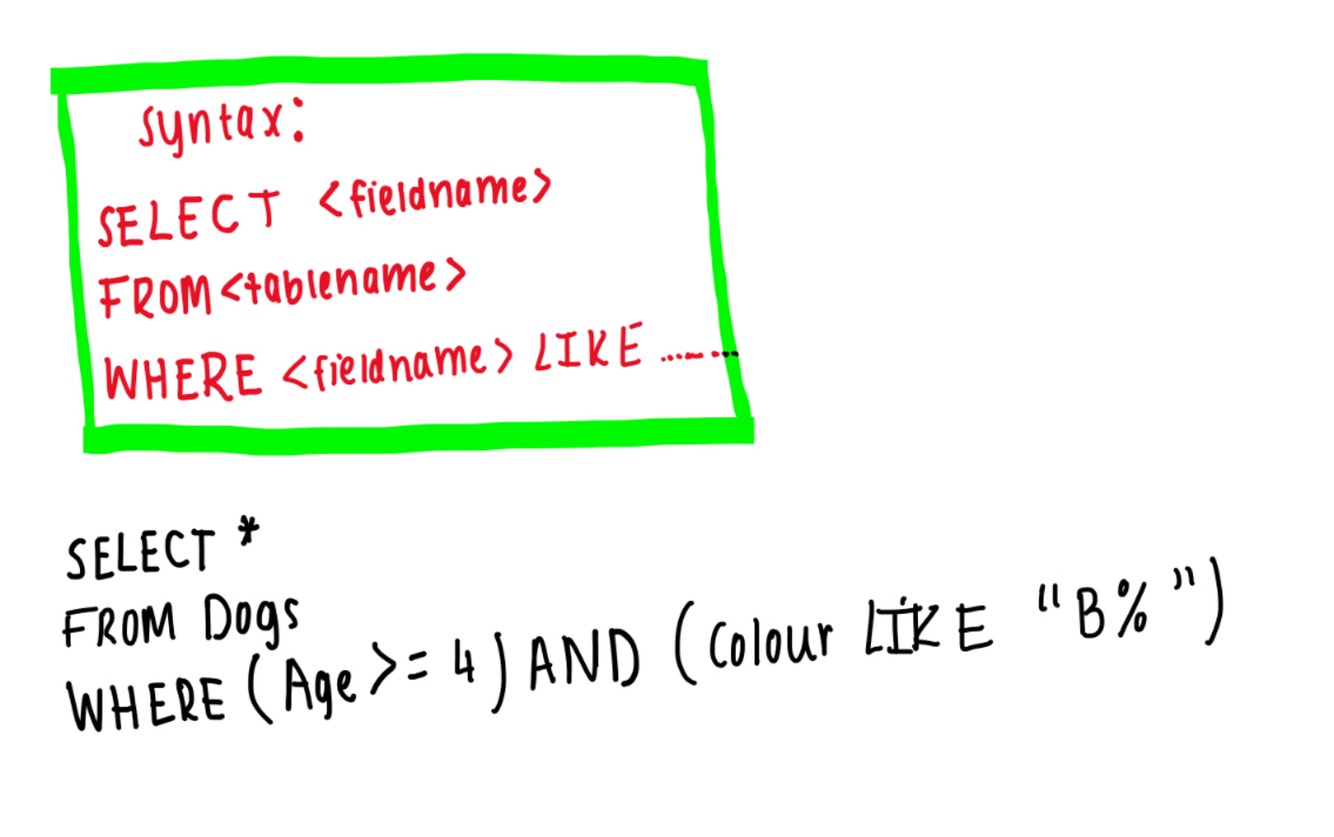 syntax:
SELECT <fieldname>
FROM <tablename>
WHERE <fieldname> LIKE ..........
SELECT *
FROM Dogs
WHERE (Age >= 4) AND (Colour LIKE "B%")